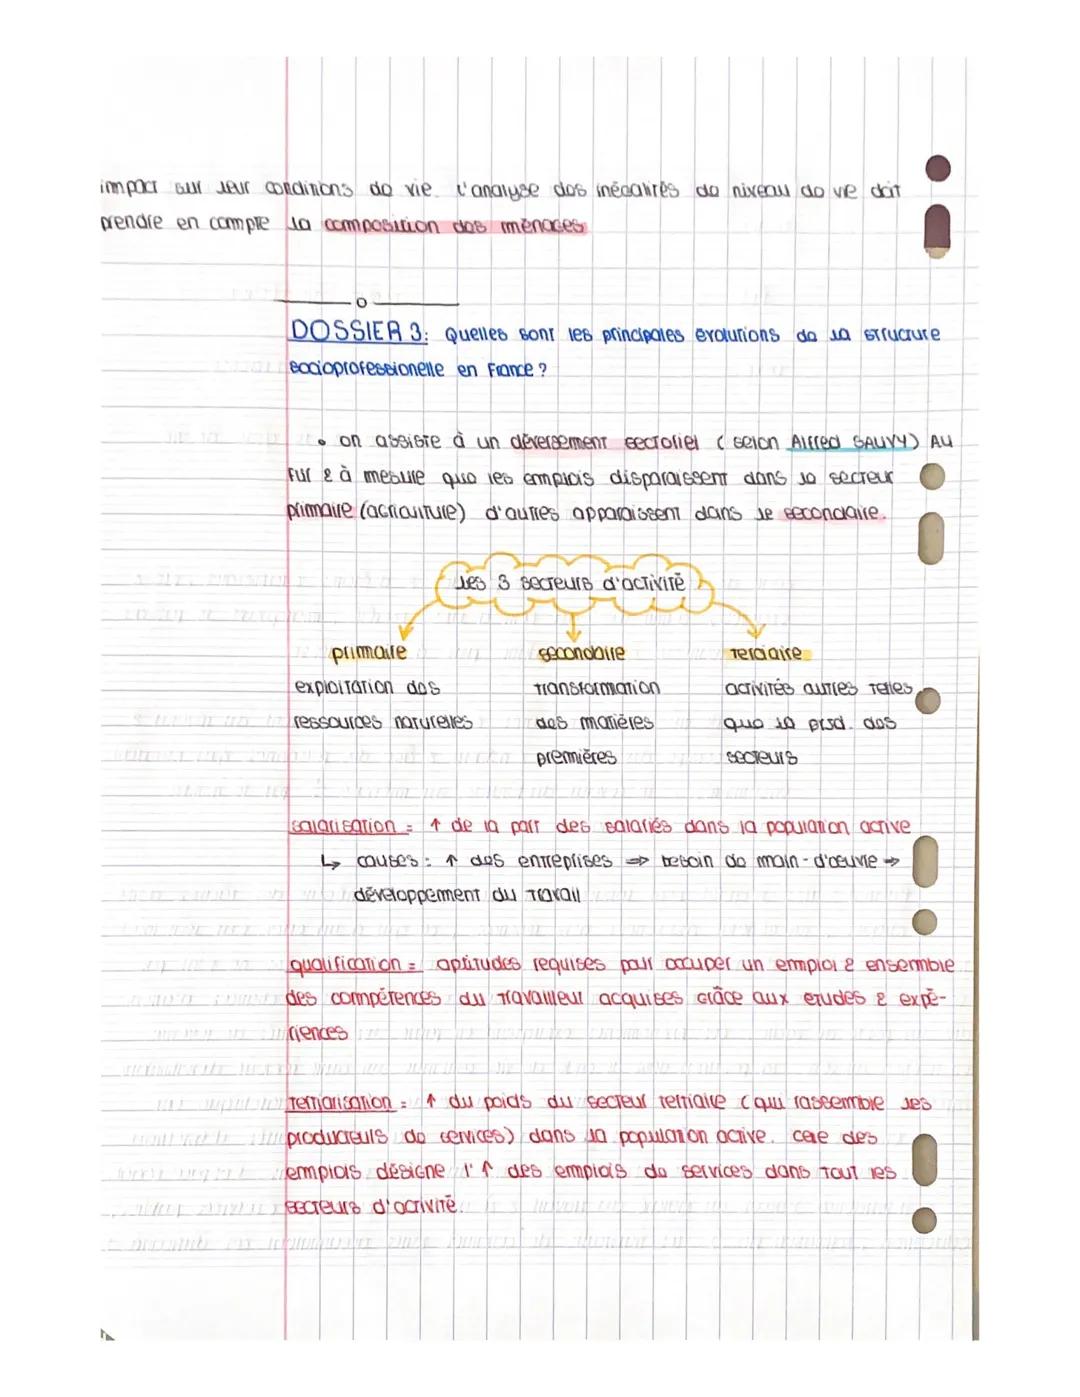 impact sur leur conditions de vie. L'analyse des inégalités de niveau de vie doit
prendre en compte la composition des ménages
DOSSIER 3: Quelles sont les principales évolutions de la structure
socioprofessionelle en France ?
• on assiste à un déversement sectoriel (selon Alfred SAUVY) AU
fur & à mesure que les emplois disparaissent dans le secteur
primaire (agriculture) d'autres apparaissent dans le secondaire.
Les 3 secteurs d'activité
primaire
exploitation des
ressources naturelles
secondaire
transformation
des matières
premières
Terciaire
activités autres telles
que la prod. des
secteurs
salarisation = ↑ de la part des salariés dans la population active
↳ causes : ↑ des entreprises ⇒ besoin de main-d'œuvre →
développement du travail
qualification = aptitudes requises pour occuper un emploi & ensemble
des compétences du travailleur acquises grâce aux etudes & expé-
riences
Tertiarisation = ↑ du poids du secteur tertiaire (qui rassemble les
producteurs de services) dans la population active. Cele des
emplois désigne l'↑ des emplois de services dans tout les
secteurs d'activité.